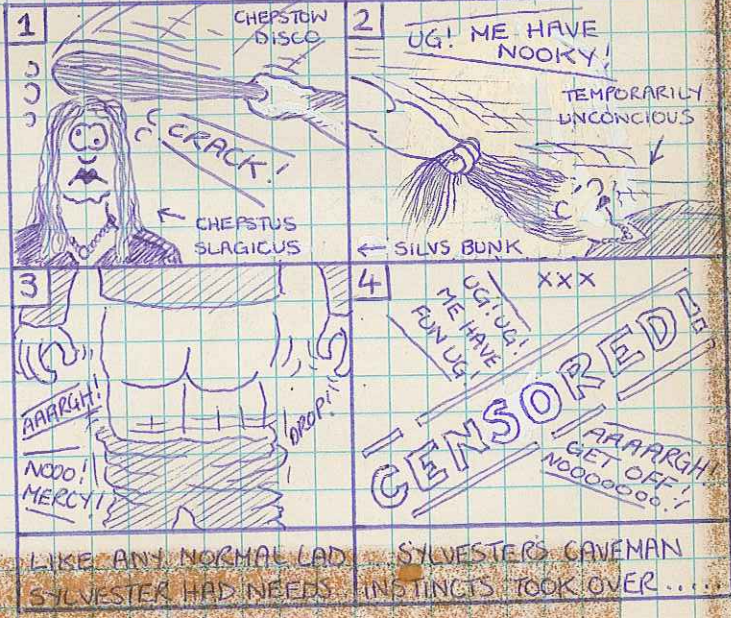 1
CHEPSTOW
DISCO
CRACK!
CHEPSTUS
SLAGICUS
2
UG! ME HAVE
NOOKY!
TEMPORARILY
UNCONCIOUS
SILVS BUNK
3
AAARGH!
NOOO!
MERCY!
DROP!!
4
UG! UG!
ME HAVE
FUN UG!
XXX
CENSORED!
AAAARGH!
GET OFF!
NOOOOOOO!!
LIKE ANY NORMAL LAD
SYLVESTER HAD NEEDS
SYLVESTERS CAVEMAN
INSTINCTS TOOK OVER.....